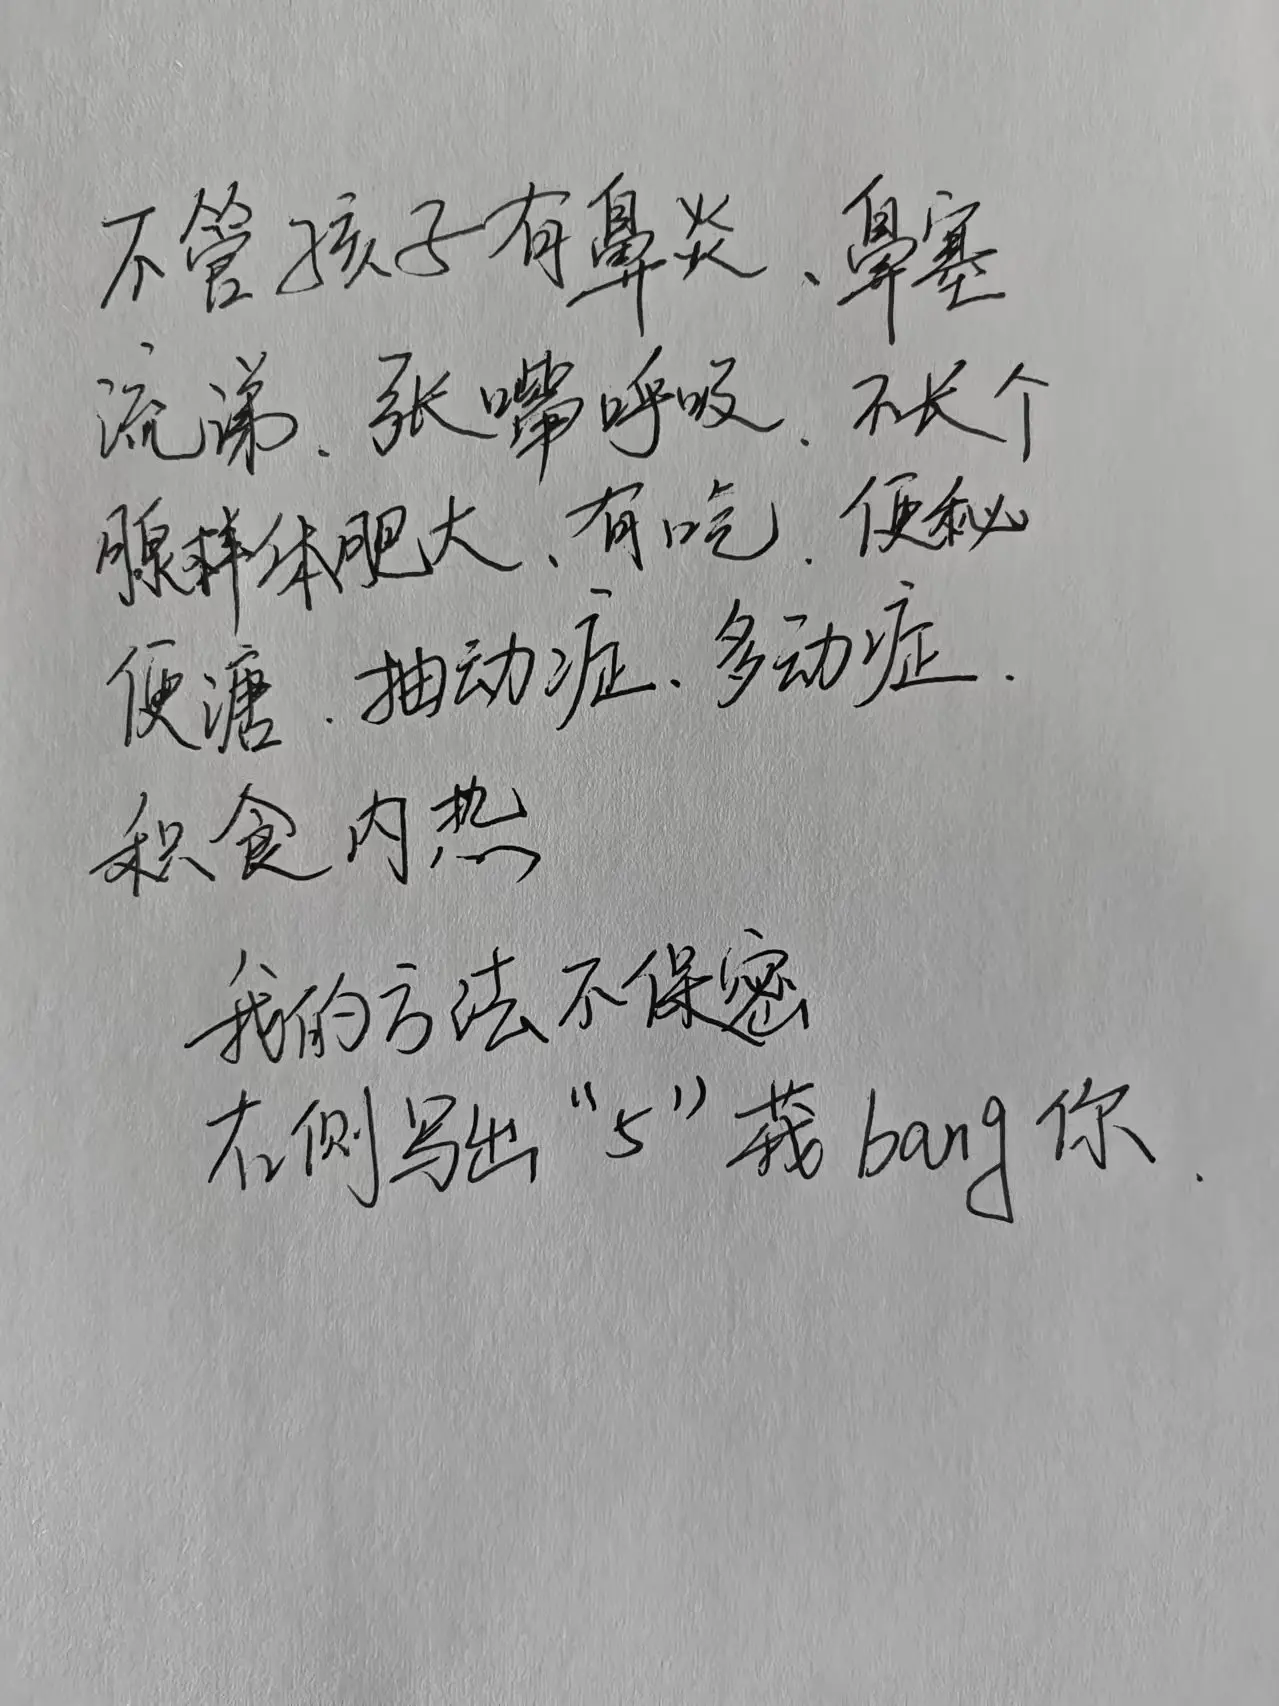 不管孩子有鼻炎、鼻塞
流涕、张嘴呼吸、不长个
腺样体肥大、有吃、便秘
便溏、抽动症、多动症、
积食内热
我的方法不保密
右侧写出“5”莪bang你.